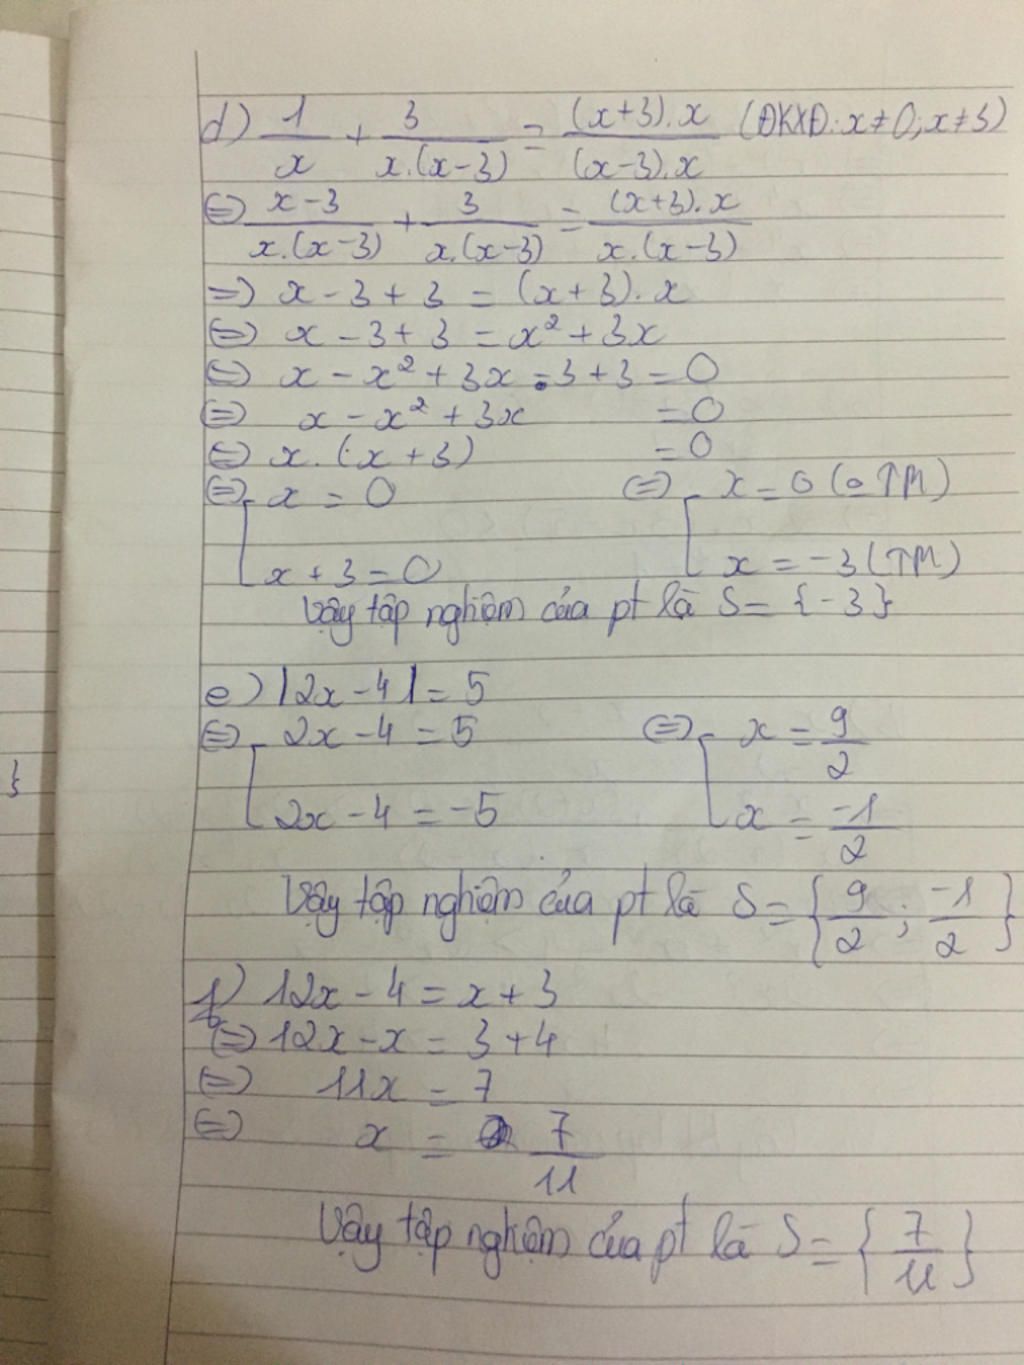 d) 1/x + 3/x.(x-3) = (x+3).x/(x-3).x (ĐKXĐ: x≠0; x≠3)
⇔ x-3/x.(x-3) + 3/x.(x-3) = (x+3).x/x.(x-3)
=> x - 3 + 3 = (x+3).x
⇔ x - 3 + 3 = x² + 3x
⇔ x - x² + 3x - 3 + 3 = 0
⇔ x - x² + 3x = 0
⇔ x.(x+3) = 0
⇔ [ x = 0 ⇔ [ x = 0 (TM)
x + 3 = 0 x = -3 (TM)
Vậy tập nghiệm của pt là S = {-3}
e) |2x - 4| = 5
⇔ [ 2x - 4 = 5 ⇔ [ x = 9/2
2x - 4 = -5 x = -1/2
Vậy tập nghiệm của pt là S = {9/2; -1/2}
f) 12x - 4 = x + 3
⇔ 12x - x = 3 + 4
⇔ 11x = 7
⇔ x = 7/11
Vậy tập nghiệm của pt là S = {7/11}
}